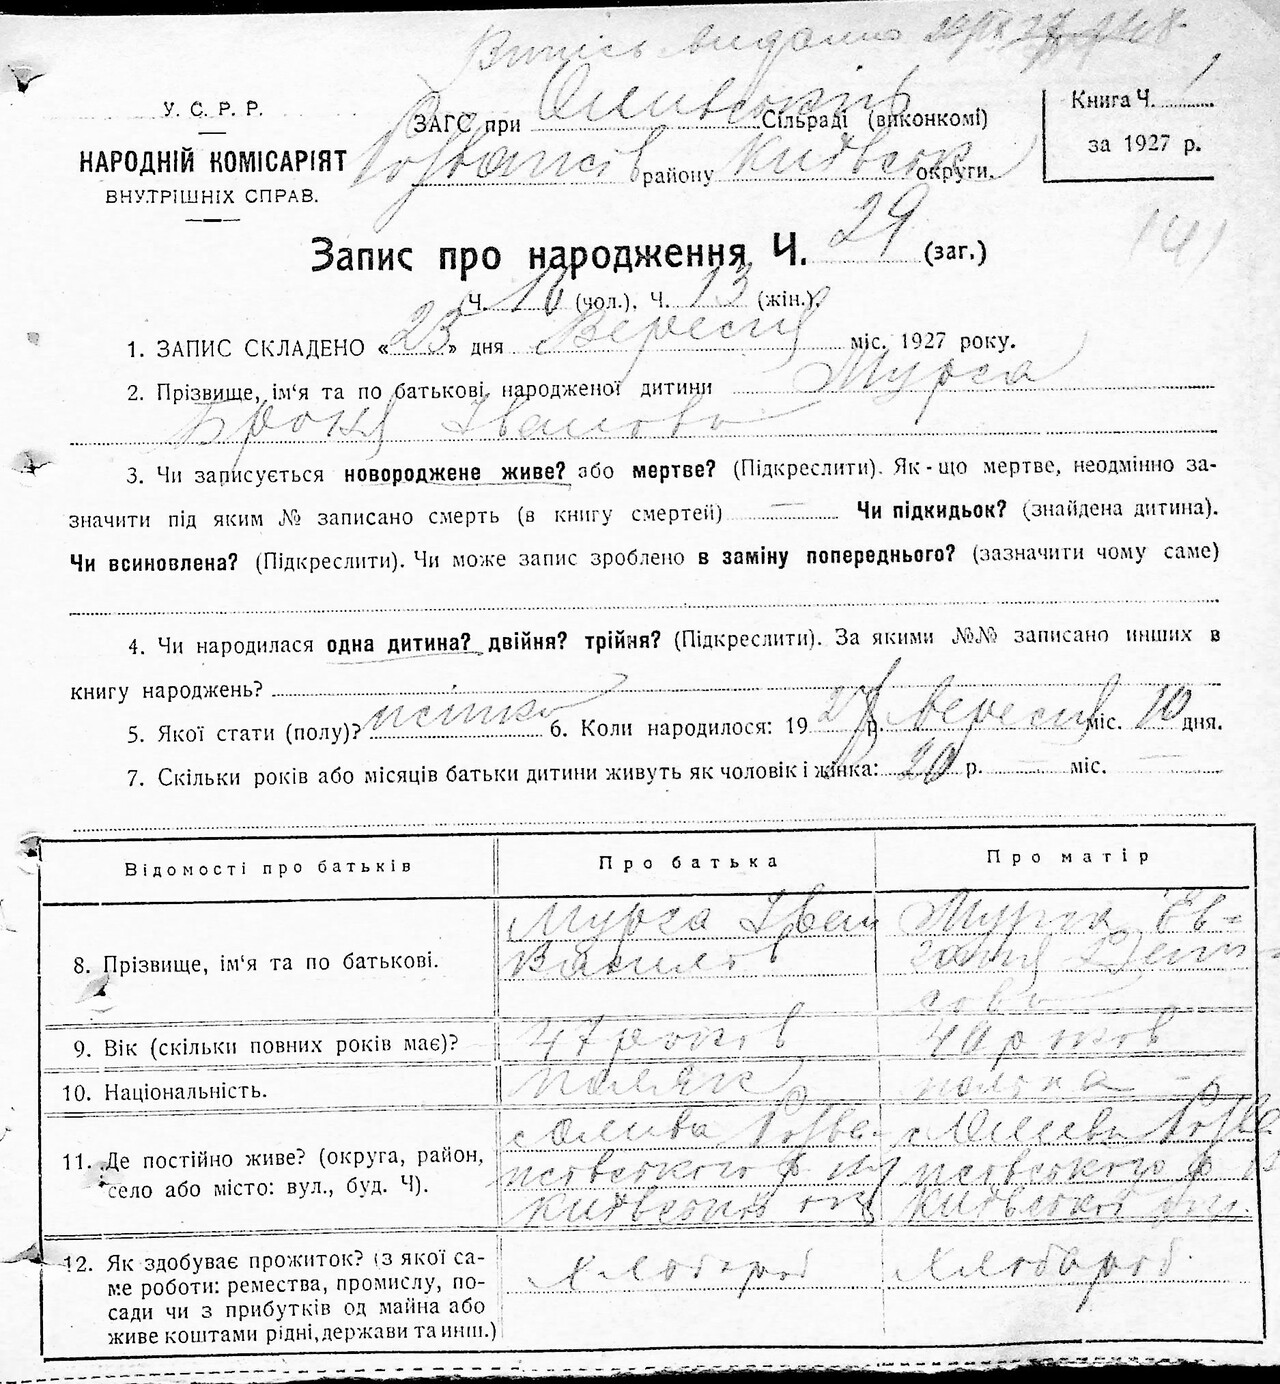 Витісь видана
У. С. Р. Р.
НАРОДНІЙ КОМІСАРІЯТ
ВНУТРІШНІХ СПРАВ.
ЗАГС при Оливській Сільраді (виконкомі)
району Київськ округи.
Книга Ч. 1
за 1927 р.
Запис про народження Ч. 29 (заг.)
Ч. 16 (чол.). Ч. 13 (жін.).
1. ЗАПИС СКЛАДЕНО «23» дня Вересня міс. 1927 року.
2. Прізвище, ім'я та по батькові народженої дитини Мурса
Броня Іванова
3. Чи записується новороджене живе? або мертве? (Підкреслити). Як-що мертве, неодмінно за-
значити під яким № записано смерть (в книгу смертей) — Чи підкидьок? (знайдена дитина).
Чи всиновлена? (Підкреслити). Чи може запис зроблено в заміну попереднього? (зазначити чому саме)
4. Чи народилася одна дитина? двійня? трійня? (Підкреслити). За якими №№ записано инших в
книгу народжень?
5. Якої стати (полу)? жіноч 6. Коли народилося: 1927 р. Вересня міс. 10 дня.
7. Скільки років або місяців батьки дитини живуть як чоловік і жінка: 20 р. — міс. —
Відомості про батьків
Про батька
Про матір
8. Прізвище, ім'я та по батькові.
Мурса Іван
Василів
Мурса Ев-
9. Вік (скільки повних років має)?
47 років
40 років
10. Національність.
поляк
полька
11. Де постійно живе? (округа, район,
село або місто: вул., буд. Ч).
с Олива Розва-
с Олива Розва
Київської
12. Як здобуває прожиток? (з якої са-
ме роботи: ремества, промислу, по-
сади чи з прибутків од майна або
живе коштами рідні, держави та инш.)
Хлібороб
Хлібороб